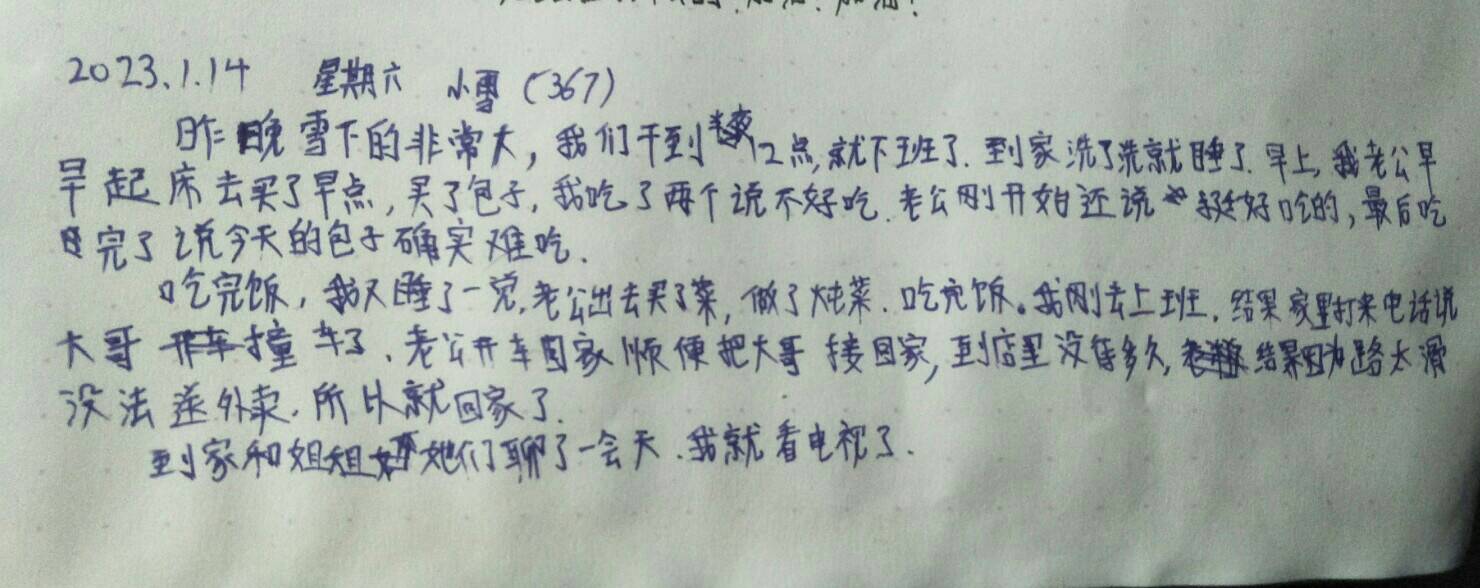 加油!加油!
2023.1.14 星期六 小雪（367）
昨晚雪下的非常大，我们干到半夜12点,就下班了.到家洗了洗就睡了.早上,我老公早
早起床去买了早点,买了包子,我吃了两个说不好吃.老公刚开始还说挺好吃的,最后吃
完了说今天的包子确实难吃.
吃完饭,我又睡了一觉.老公出去买了菜,做了炖菜.吃完饭。我刚去上班.结果家里打来电话说
大哥撞车了.老公开车回家顺便把大哥接回家,到店里没待多久,结果因为路太滑
没法送外卖.所以就回家了.
到家和姐姐她们聊了一会天.我就看电视了.